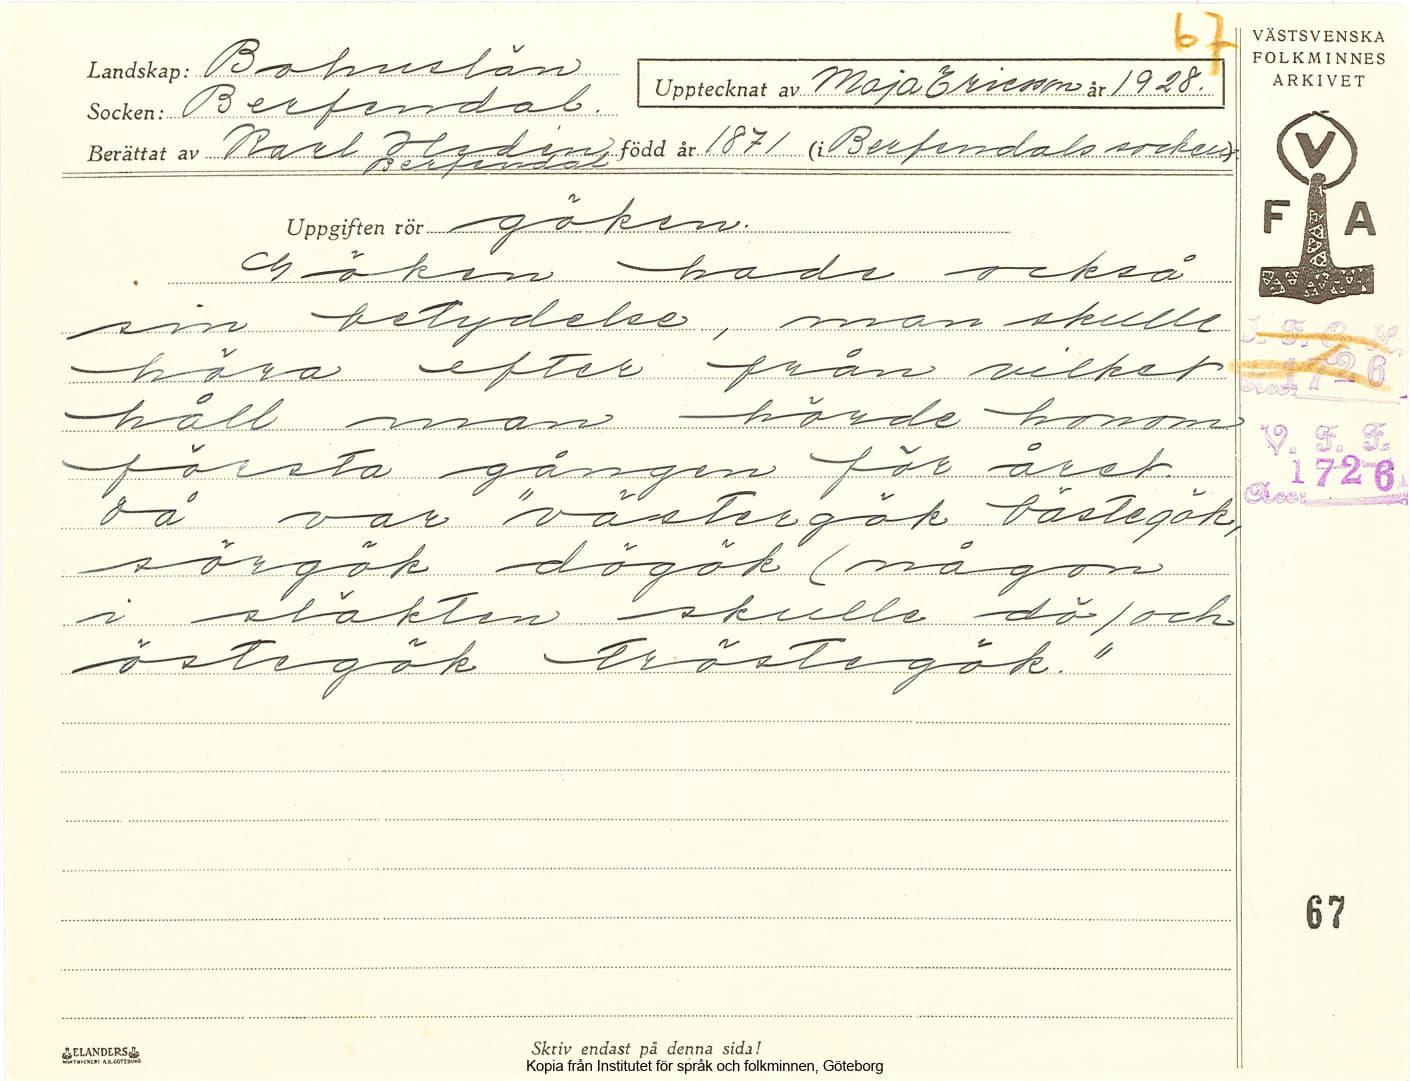 67
VÄSTSVENSKA
FOLKMINNES
ARKIVET
Landskap: Bohuslän
Upptecknat av Maja Ericsson år 1928.
Socken: Berfendal.
Berättat av Karl Hedin född år 1871 (i Berfendals socken).
Berfendal
V
F A
Uppgiften rör göken.
Göken hade också
sin betydelse, man skulle
höra efter från vilket
håll man hörde honom
första gången för året.
Då var "västergök bästegök,
sörgök dögök (någon
i släkten skulle dö) och
östegök tröstegök."
I. F. G. H.
1726
Acc:
V. F. F.
1726
Acc:
67
ELANDERS
Skriv endast på denna sida!
Kopia från Institutet för språk och folkminnen, Göteborg